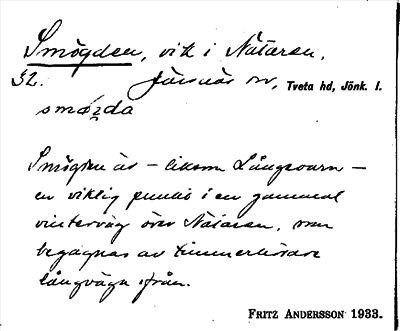 Smögden, vik i Nätaren,
32. Järsnäs sn, Tveta hd, Jönk. l.
smøzda
Smögden är – liksom Långevarn –
en viktig punkt i en gammal
vinterväg över Nätaren, som
begagnas av timmerkörare
långväga ifrån.
FRITZ ANDERSSON 1933.